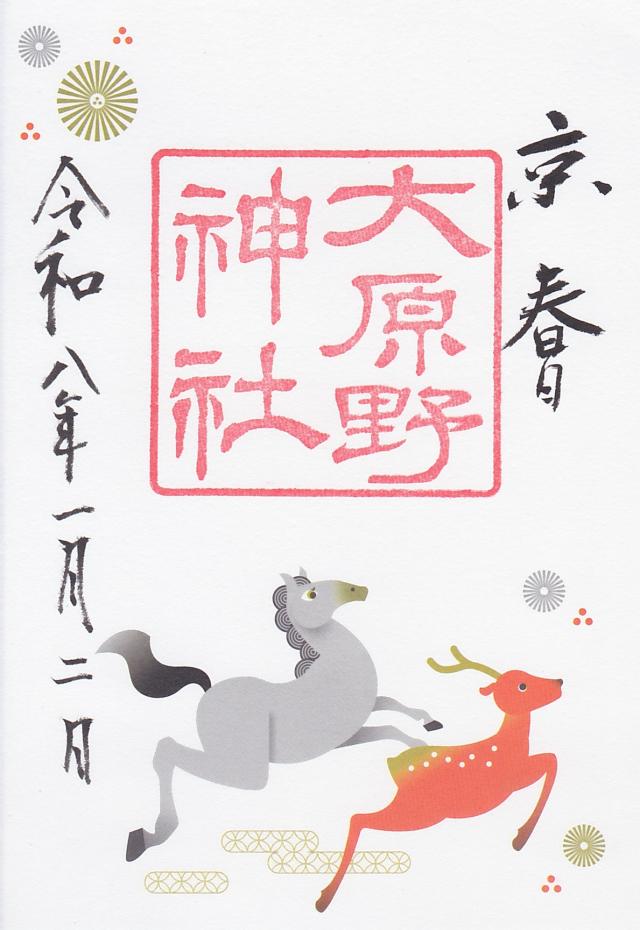 京春日
大原野
神社
令和八年一月二日